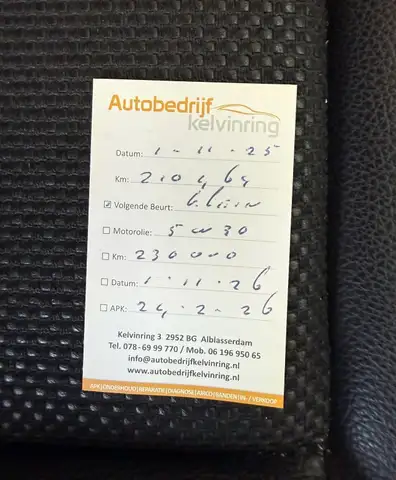 Autobedrijf
kelvinring
Datum: 1 - 11 - 25
Km: 210464
☑ Volgende Beurt: klein
☐ Motorolie: 5w30
☐ Km: 230000
☐ Datum: 1 - 11 - 26
☐ APK: 24 - 2 - 26
Kelvinring 3 2952 BG Alblasserdam
Tel. 078 - 69 99 770 / Mob. 06 196 950 65
info@autobedrijfkelvinring.nl
www.autobedrijfkelvinring.nl
APK|ONDERHOUD|REPARATIE|DIAGNOSE|AIRCO|BANDEN|IN- / VERKOOP